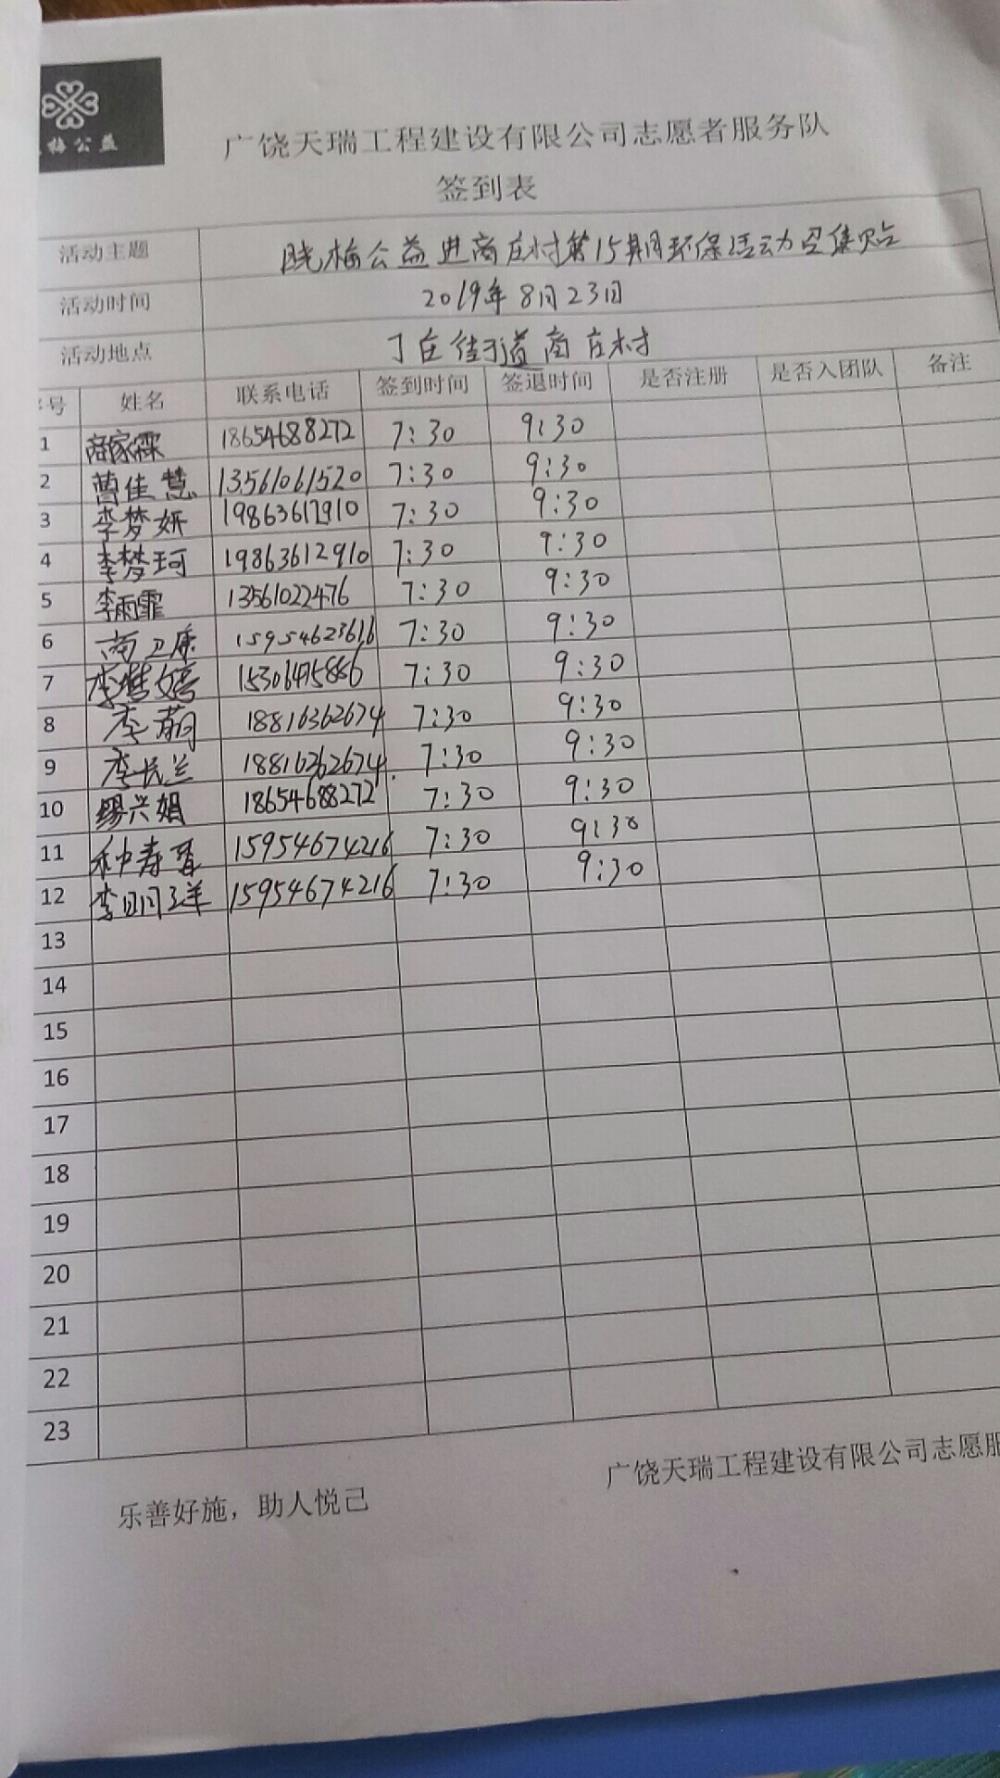 梅公益
广饶天瑞工程建设有限公司志愿者服务队
签到表
活动主题 晓梅公益进商庄村第15期环保活动召集贴
活动时间 2019年8月23日
活动地点 丁庄街道商庄村
号 姓名 联系电话 签到时间 签退时间 是否注册 是否入团队 备注
1 商家霖 18654688272 7:30 9:30
2 曹佳慧 13561061520 7:30 9:30
3 李梦妍 19863612910 7:30 9:30
4 李梦珂 19863612910 7:30 9:30
5 李雨霏 13561022476 7:30 9:30
6 商卫康 15954623616 7:30 9:30
7 李婷 15306475886 7:30 9:30
8 李萌 18816362674 7:30 9:30
9 李长兰 18816262674 7:30 9:30
10 兴娟 18654688272 7:30 9:30
11 种寿香 15954674216 7:30 9:30
12 李明洋 15954674216 7:30 9:30
13
14
15
16
17
18
19
20
21
22
23
广饶天瑞工程建设有限公司志愿服
乐善好施，助人悦己